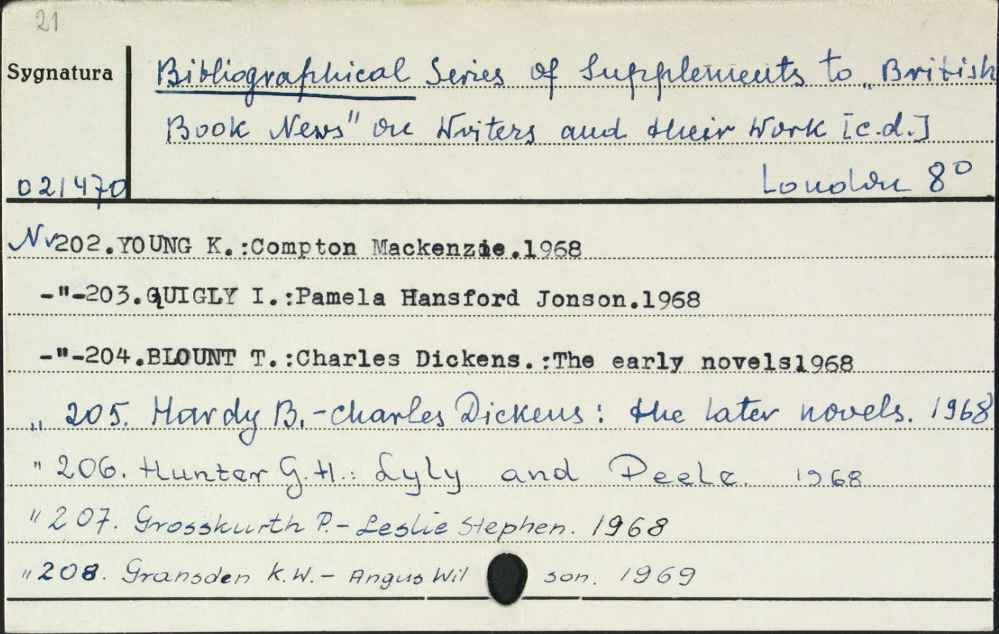 21
Sygnatura
Bibliographical Series of Supplements to „British
Book News" on Writers and their Work [c.d.]
021470
London 8°
Nr 202.YOUNG K.:Compton Mackenzie.1968
-"-203.QUIGLY I.:Pamela Hansford Jonson.1968
-"-204.BLOUNT T.:Charles Dickens.:The early novels1968
„ 205. Hardy B.-Charles Dickens: the later novels. 1968
" 206. Hunter G.H.: Lyly and Peele. 1968
" 207. Grosskurth P.- Leslie Stephen. 1968
" 208. Gransden K.W.- Angus Wil son. 1969